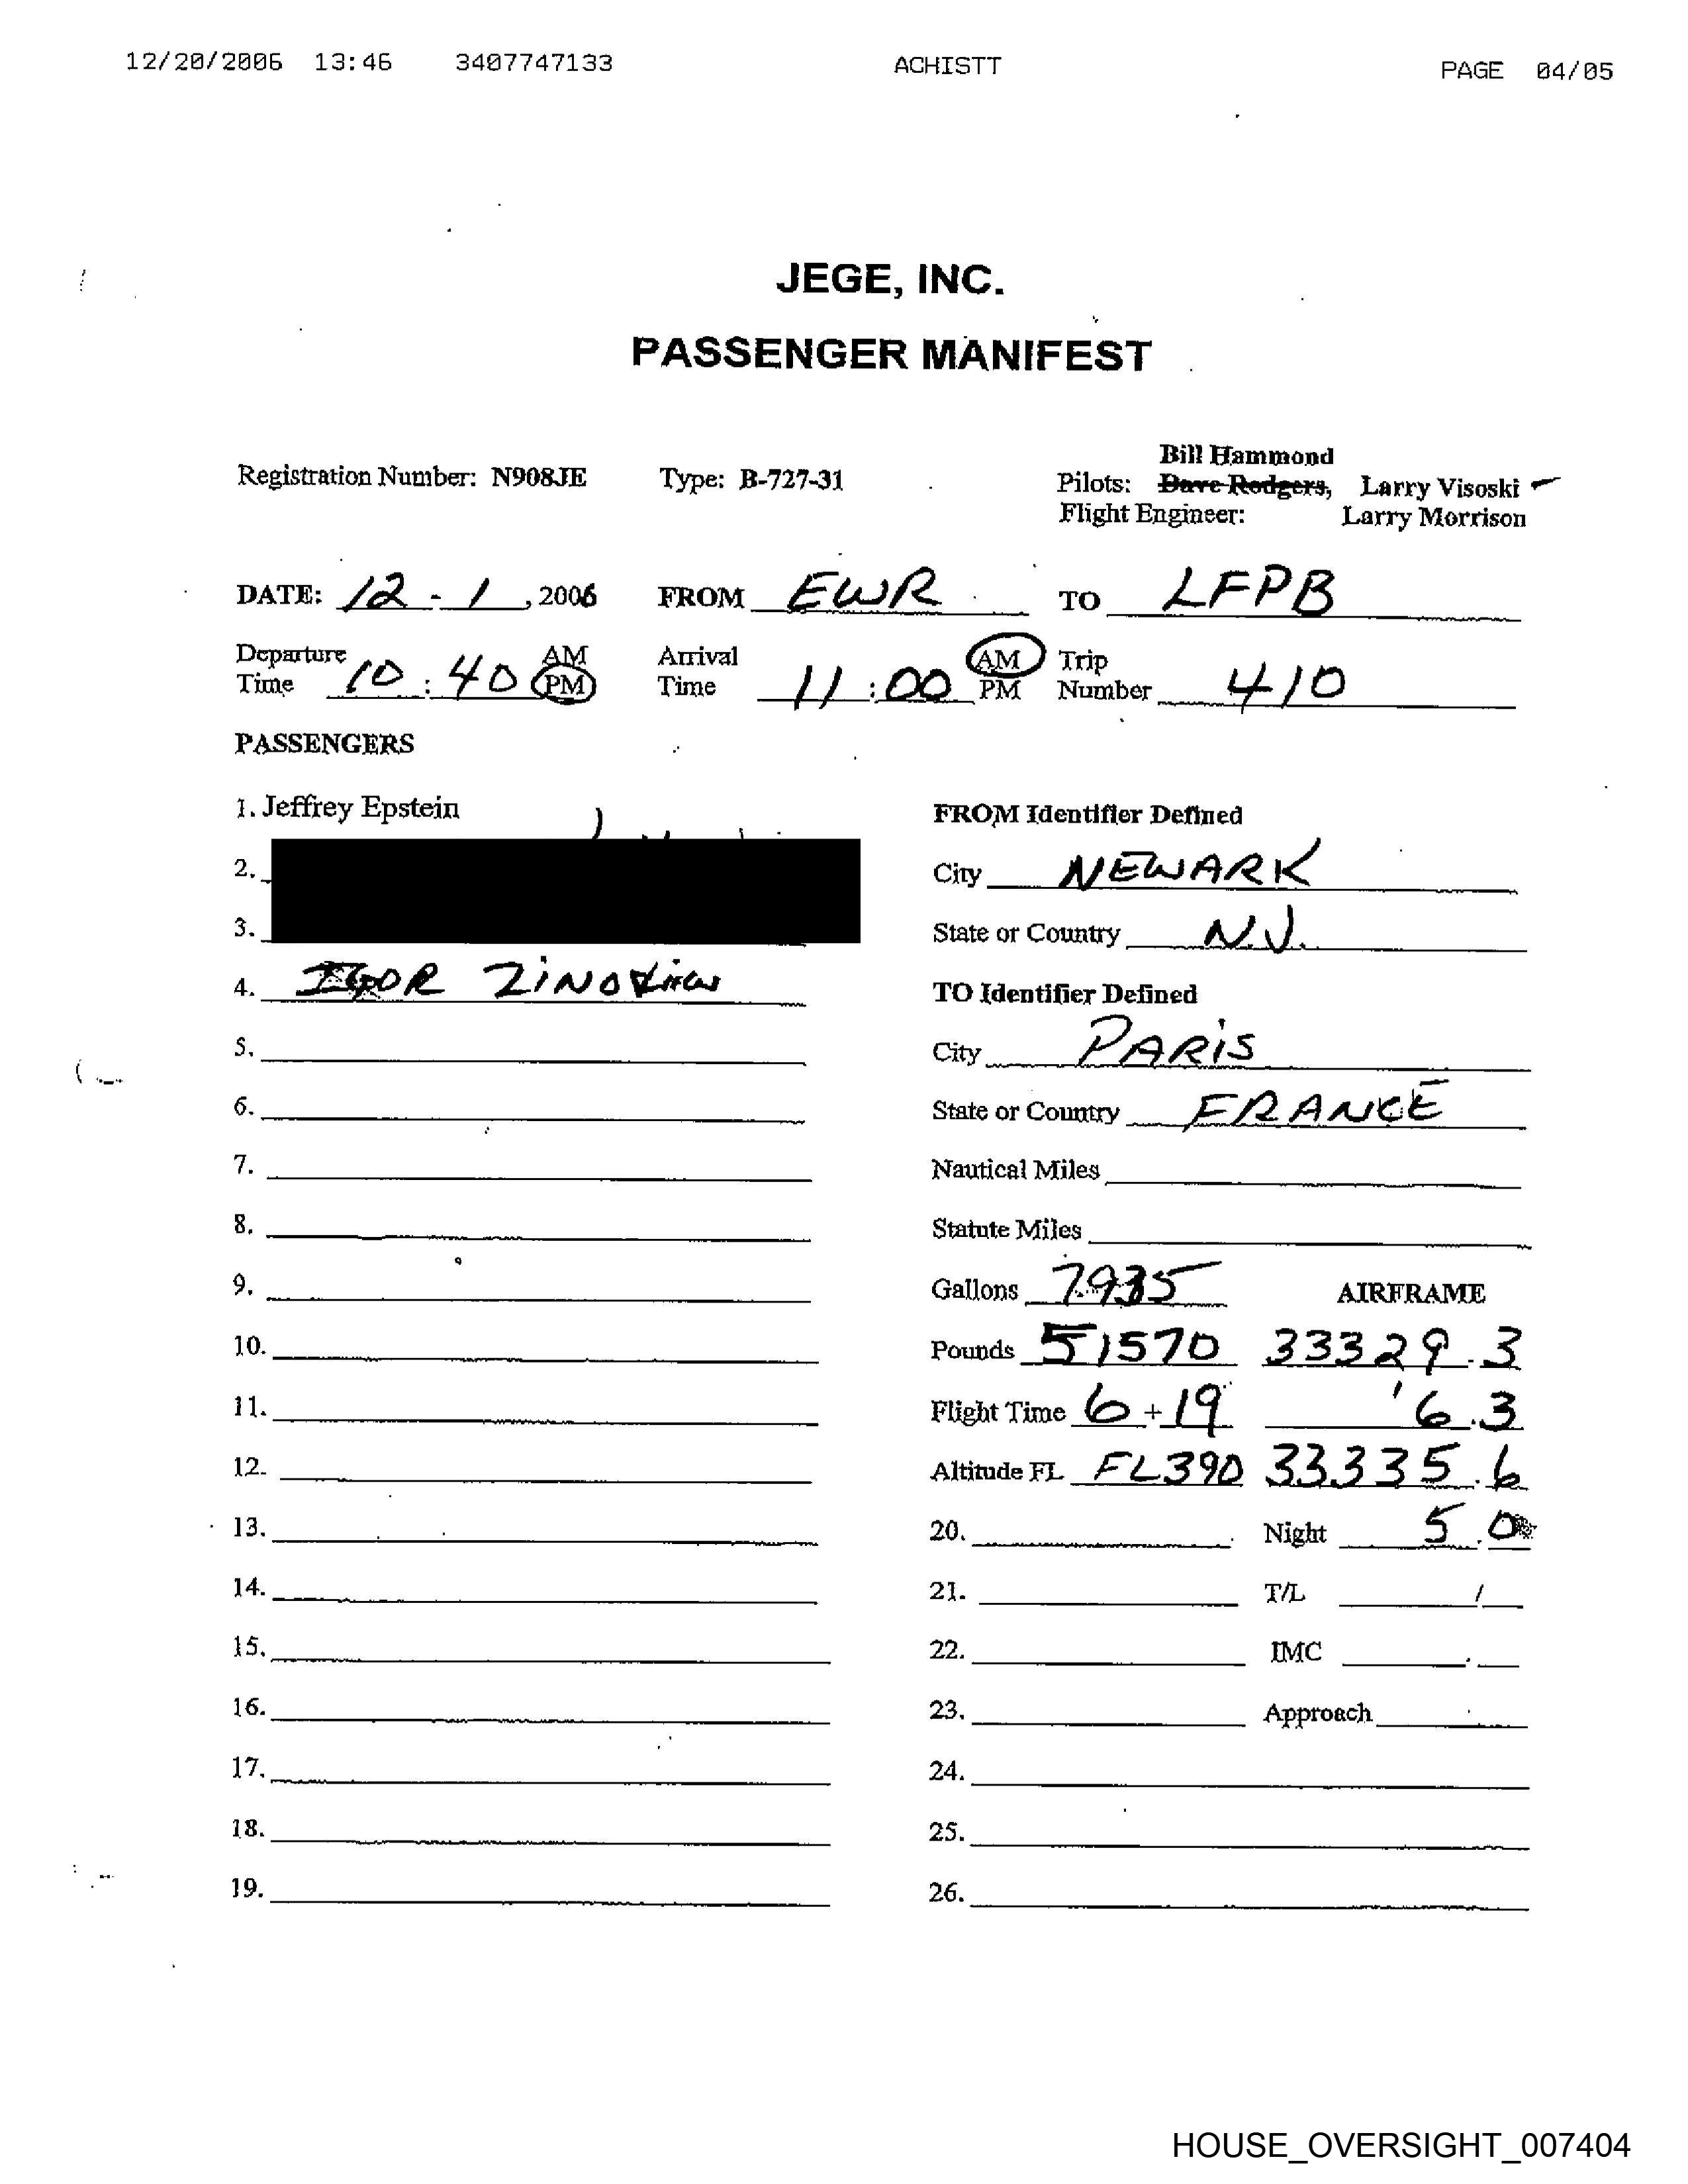 12/20/2006 13:46 3407747133 ACHISTT PAGE 04/05
JEGE, INC.
PASSENGER MANIFEST
Bill Hammond
Registration Number: N908JE Type: B-727-31 Pilots: Dave Rodgers, Larry Visoski
Flight Engineer: Larry Morrison
DATE: 12 - 1 , 2006 FROM EWR TO LFPB
Departure Time 10 : 40 AM PM Arrival Time 11 : 00 AM PM Trip Number 410
PASSENGERS
1. Jeffrey Epstein
2.
3.
4. IGOR ZINOVIEW
5.
6.
7.
8.
9.
10.
11.
12.
13.
14.
15.
16.
17.
18.
19.
FROM Identifier Defined
City NEWARK
State or Country N.J.
TO Identifier Defined
City PARIS
State or Country FRANCE
Nautical Miles
Statute Miles
Gallons 7935 AIRFRAME
Pounds 51570 33329.3
Flight Time 6 + 19 6.3
Altitude FL FL390 33335.6
20. Night 5.0
21. T/L /
22. IMC .
23. Approach
24.
25.
26.
HOUSE_OVERSIGHT_007404